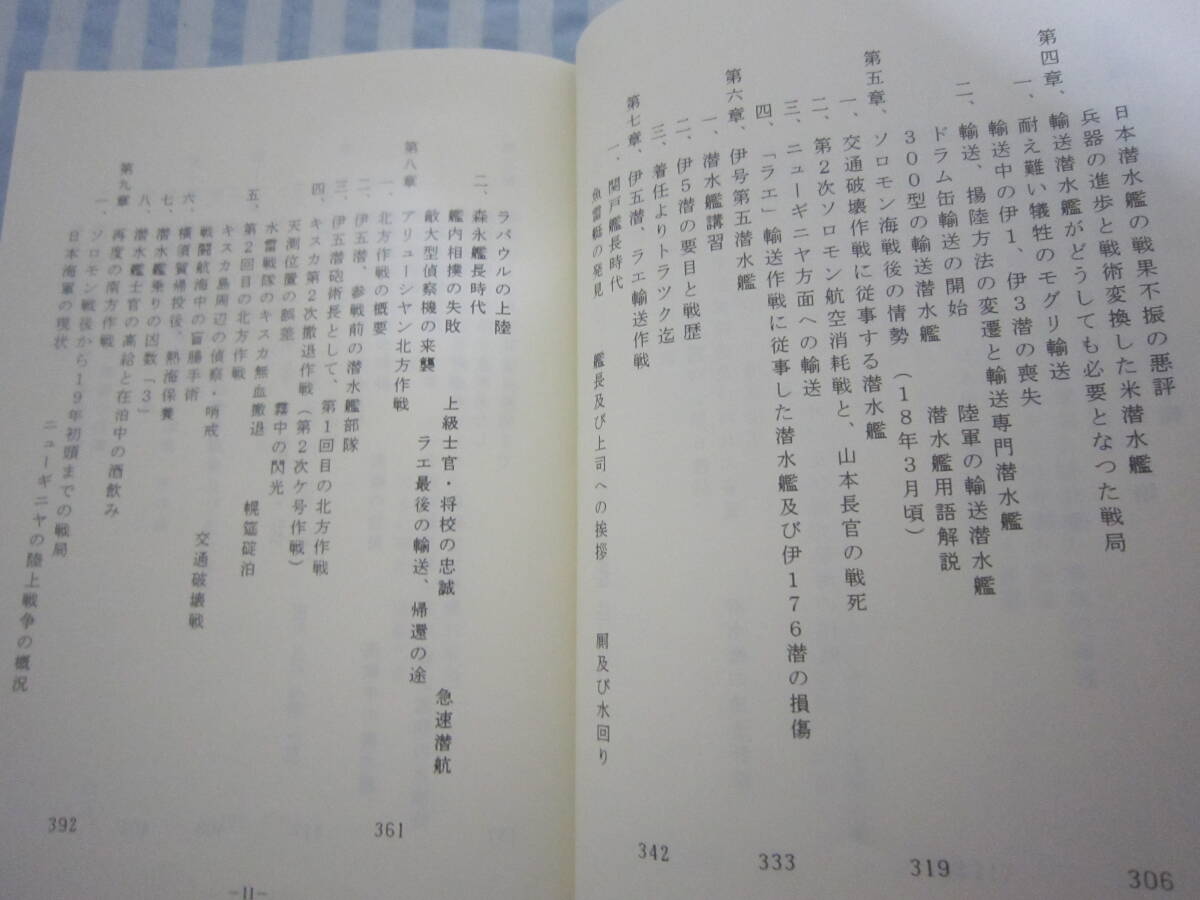 日本潜水艦の戦果不振の悪評
兵器の進歩と戦術変換した米潜水艦
第四章、輸送潜水艦がどうしても必要となった戦局 306
一、耐え難い犠牲のモグリ輸送
輸送中の伊1、伊3潜の喪失
二、輸送、揚陸方法の変遷と輸送専門潜水艦
ドラム缶輸送の開始 陸軍の輸送潜水艦
300型の輸送潜水艦 潜水艦用語解説
第五章、ソロモン海戦後の情勢（18年3月頃） 319
一、交通破壊作戦に従事する潜水艦
二、第2次ソロモン航空消耗戦と、山本長官の戦死
三、ニューギニヤ方面への輸送
四、「ラエ」輸送作戦に従事した潜水艦及び伊176潜の損傷
第六章、伊号第五潜水艦 333
一、潜水艦講習
二、伊5潜の要目と戦歴
三、着任よりトラック迄
第七章、伊五潜、ラエ輸送作戦 342
一、関戸艦長時代
魚雷艇の発見 艦長及び上司への挨拶 厠及び水回り
ラバウルの上陸
二、森永艦長時代
艦内相撲の失敗 上級士官・将校の忠誠 急速潜航
敵大型偵察機の来襲 ラエ最後の輸送、帰還の途
第八章 アリューシヤン北方作戦 361
一、北方作戦の概要
二、伊五潜、参戦前の潜水艦部隊
三、伊五潜砲術長として、第1回目の北方作戦
四、キスカ第2次撤退作戦（第2次ケ号作戦）
天測位置の誤差 霧中の閃光
水雷戦隊のキスカ無血撤退
五、第2回目の北方作戦 幌筵碇泊
キスカ島周辺の偵察・哨戒
戦闘航海中の盲腸手術 交通破壊戦
六、横須賀帰投後、熱海保養
七、潜水艦乗りの凶数「3」
八、潜水艦士官の高給と在泊中の酒飲み
第九章 再度の南方作戦 392
一、ソロモン戦後から19年初頭までの戦局
日本海軍の現状 ニューギニヤの陸上戦争の概況
-11-